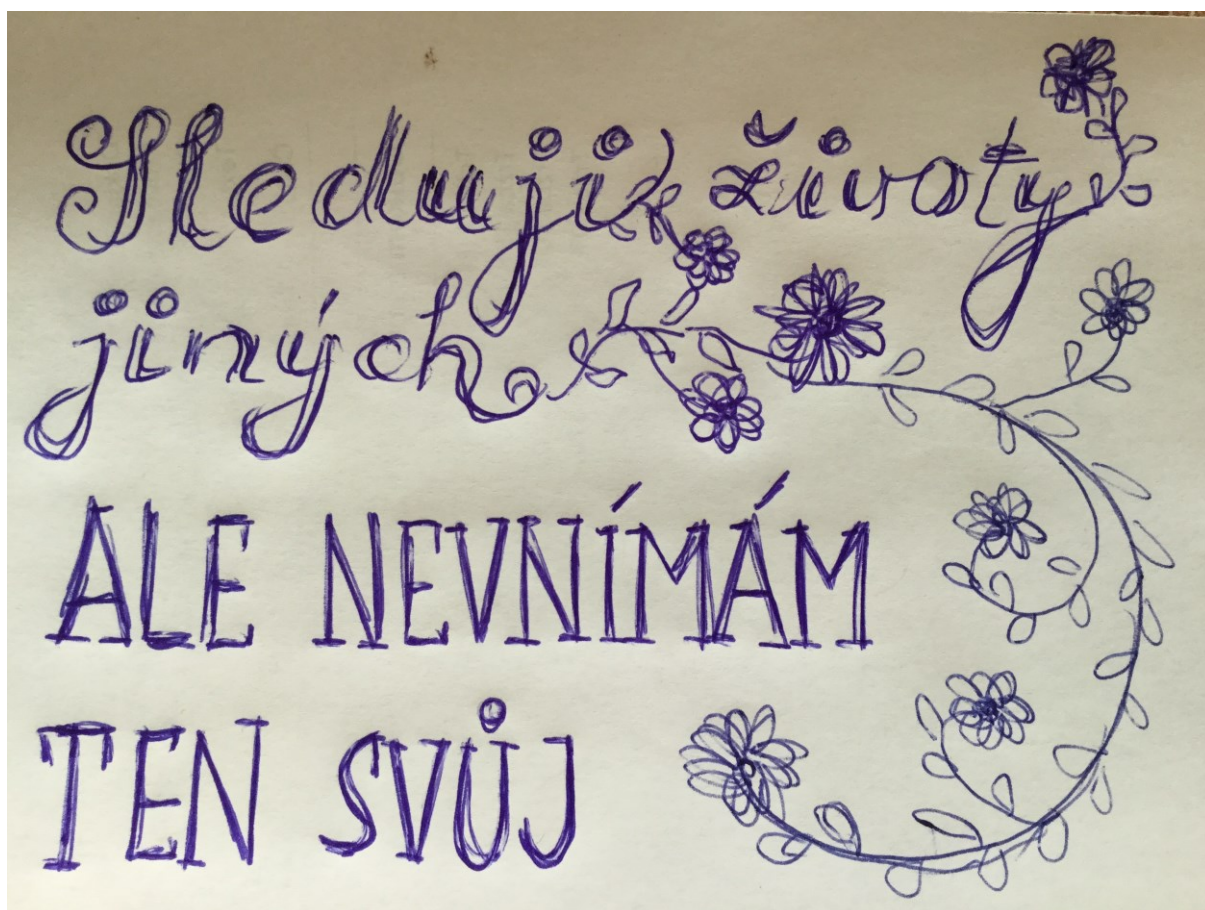 Sleduji životy
jiných
ALE NEVNÍMÁM
TEN SVŮJ